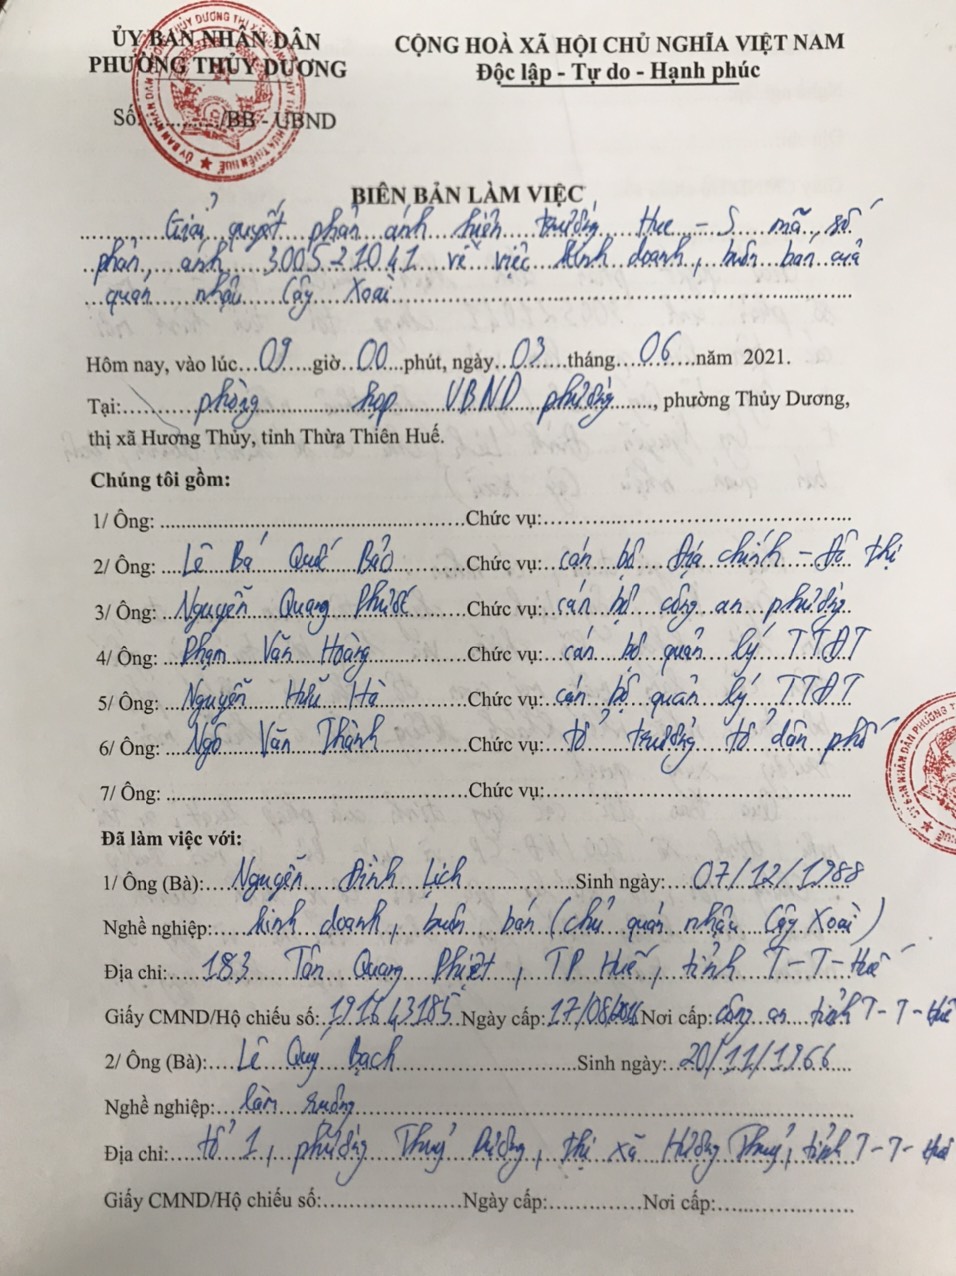 ỦY BAN NHÂN DÂN
PHƯỜNG THỦY DƯƠNG
CỘNG HOÀ XÃ HỘI CHỦ NGHĨA VIỆT NAM
Độc lập - Tự do - Hạnh phúc
Số:............/BB - UBND
BIÊN BẢN LÀM VIỆC
Giải quyết phản ánh hiện trường Hue-S mã số
phản ánh 300521041 về việc kinh doanh, buôn bán của
quán nhậu Cây Xoài
Hôm nay, vào lúc 09 giờ 00 phút, ngày 03 tháng 06 năm 2021.
Tại: phòng họp UBND phường, phường Thủy Dương,
thị xã Hương Thủy, tỉnh Thừa Thiên Huế.
Chúng tôi gồm:
1/ Ông: ........................ Chức vụ: ........................
2/ Ông: Lê Bá Quế Bảo Chức vụ: cán bộ Địa chính - Đô thị
3/ Ông: Nguyễn Quang Phước Chức vụ: cán bộ công an phường
4/ Ông: Phạm Văn Hoàng Chức vụ: cán bộ quản lý TTĐT
5/ Ông: Nguyễn Hữu Hà Chức vụ: cán bộ quản lý TTĐT
6/ Ông: Ngô Văn Thành Chức vụ: tổ trưởng tổ dân phố
7/ Ông: ........................ Chức vụ: ........................
Đã làm việc với:
1/ Ông (Bà): Nguyễn Đình Lịch Sinh ngày: 07/12/1988
Nghề nghiệp: kinh doanh, buôn bán (chủ quán nhậu Cây Xoài)
Địa chỉ: 183 Tôn Quang Phiệt, TP Huế, tỉnh T-T-Huế
Giấy CMND/Hộ chiếu số: 191643185 Ngày cấp: 17/08/2016 Nơi cấp: công an tỉnh T-T-Huế
2/ Ông (Bà): Lê Quý Bạch Sinh ngày: 20/11/1966
Nghề nghiệp: làm ruộng
Địa chỉ: tổ 1, phường Thuỷ Dương, thị xã Hương Thuỷ, tỉnh T-T-Huế
Giấy CMND/Hộ chiếu số: .................. Ngày cấp: ............ Nơi cấp: ..................